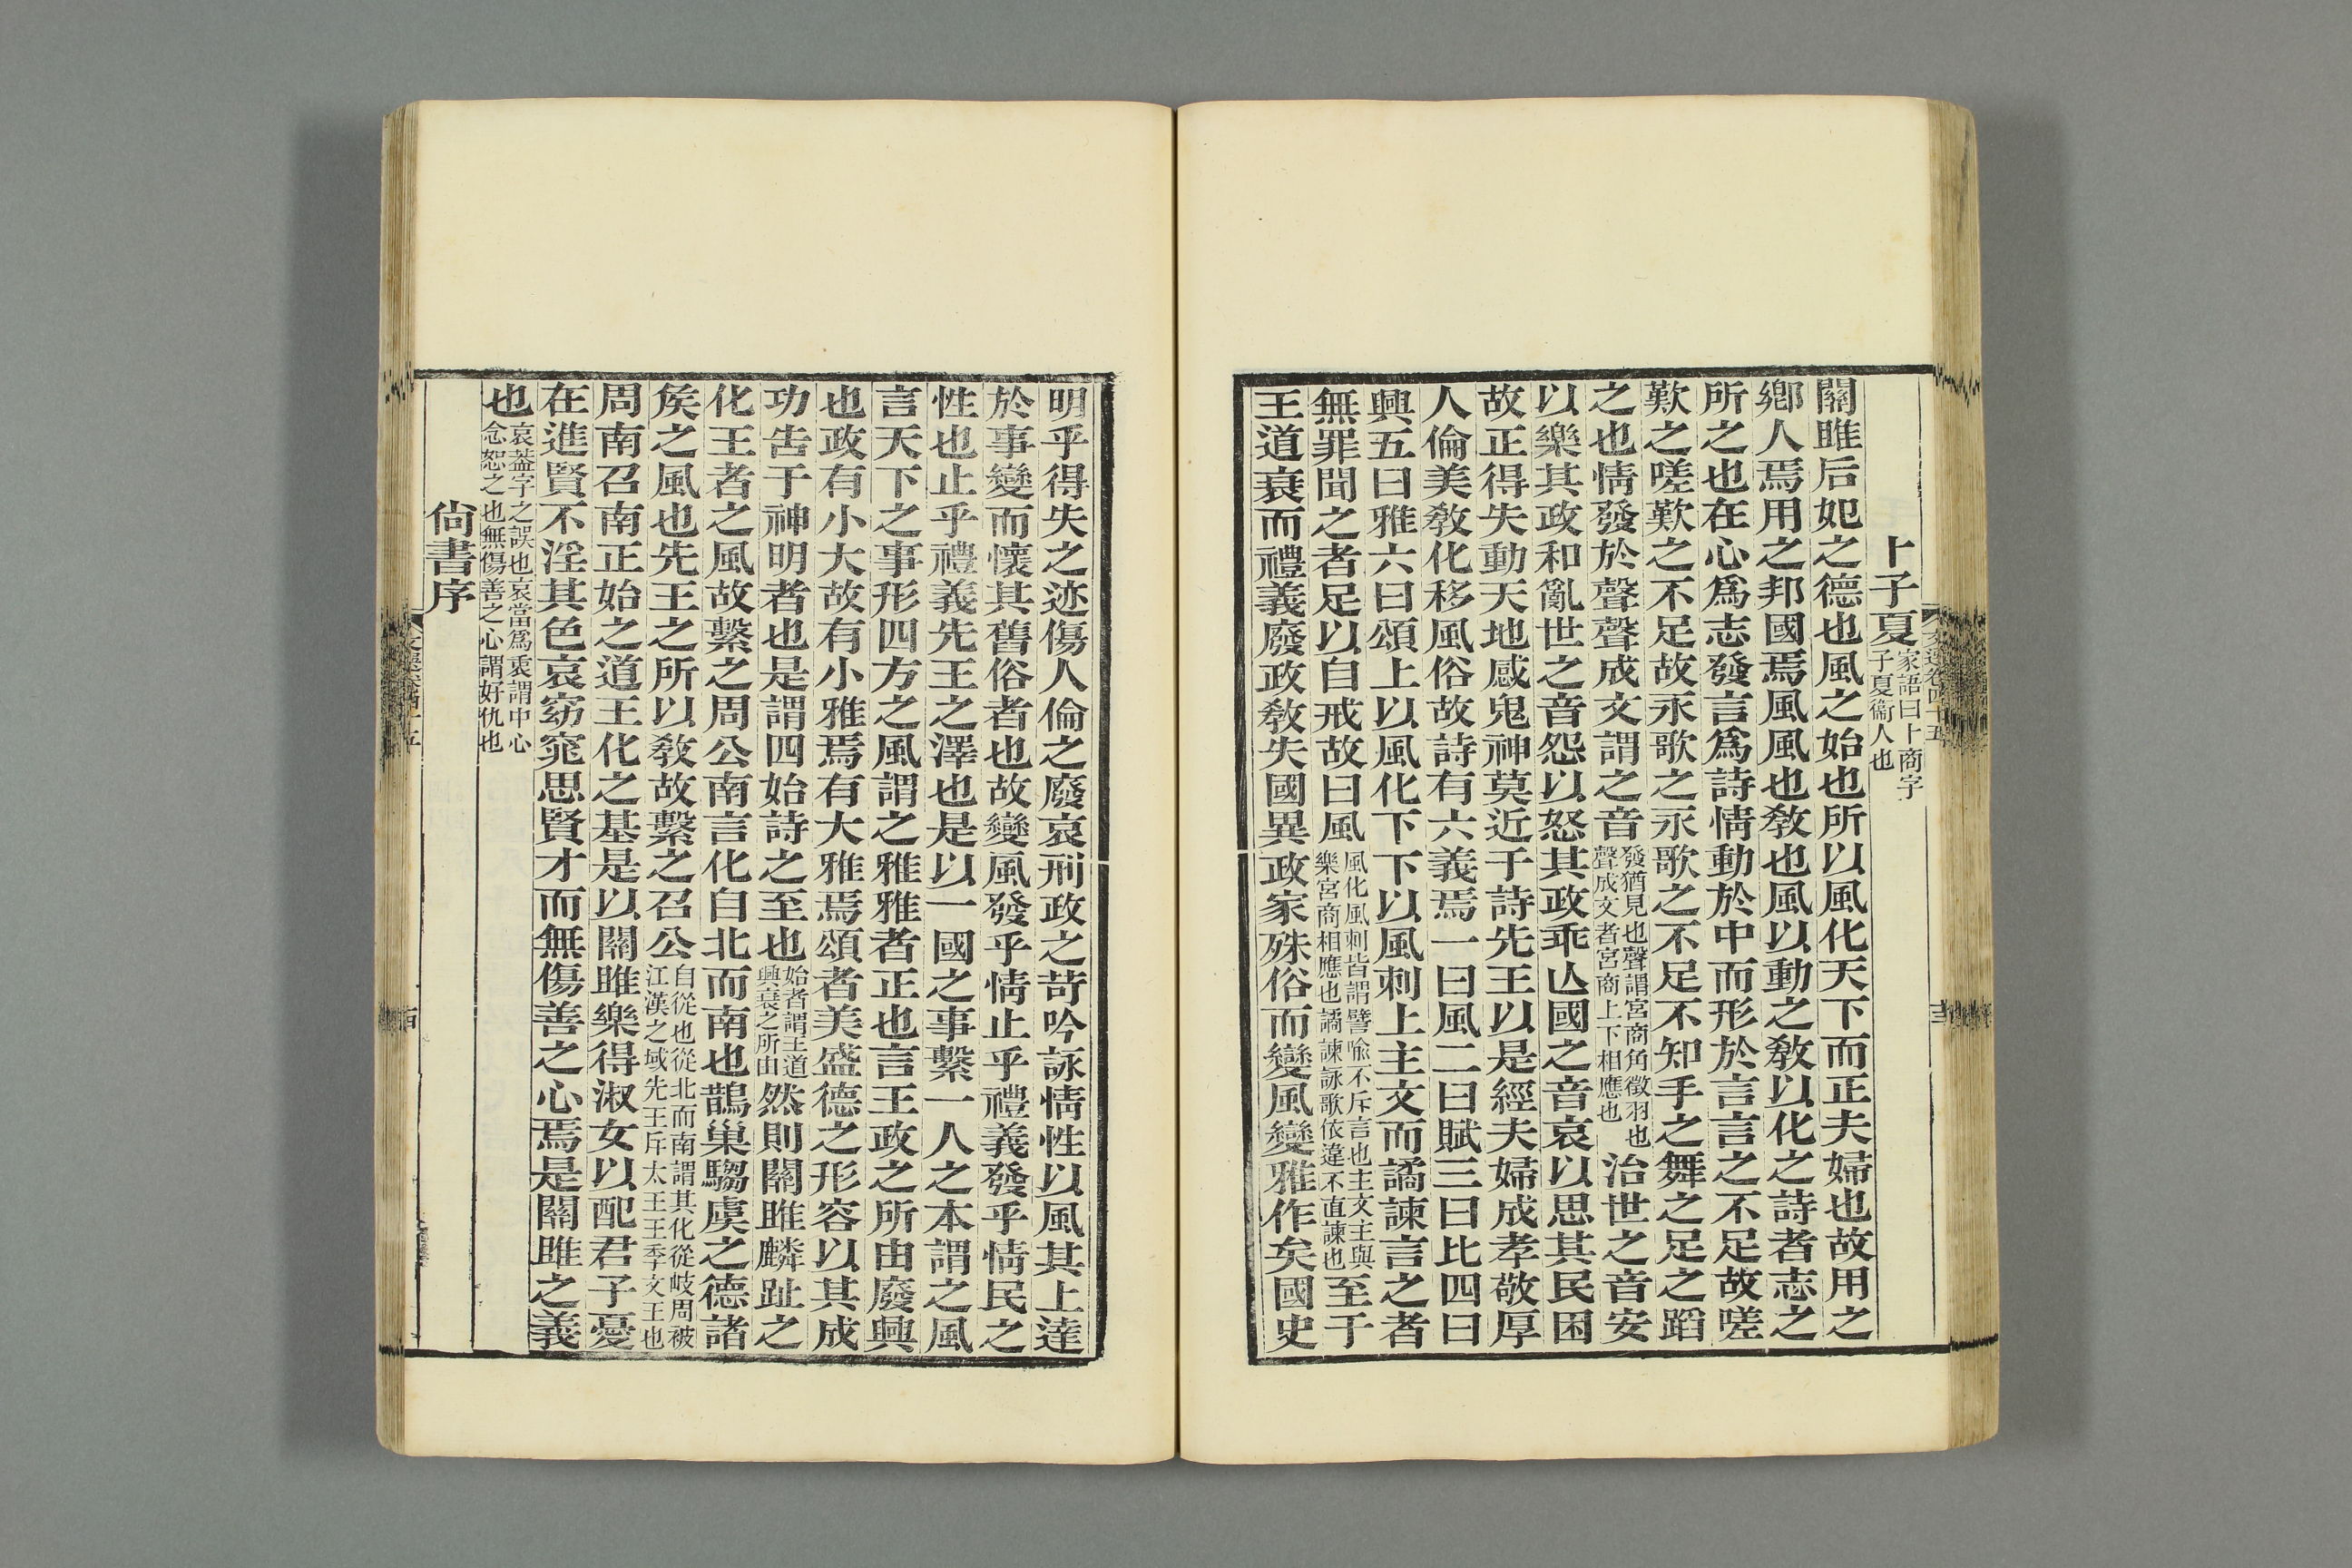 卜子夏家語曰卜商字子夏衞人也
關雎后妃之德也風之始也所以風化天下而正夫婦也故用之
鄉人焉用之邦國焉風風也敎也風以動之敎以化之詩者志之
所之也在心爲志發言爲詩情動於中而形於言言之不足故嗟
歎之嗟歎之不足故永歌之永歌之不足不知手之舞之足之蹈
之也情發於聲聲成文謂之音發猶見也聲謂宮商角徵羽也聲成文者宮商上下相應也治世之音安
以樂其政和亂世之音怨以怒其政乖亾國之音哀以思其民困
故正得失動天地感鬼神莫近于詩先王以是經夫婦成孝敬厚
人倫美敎化移風俗故詩有六義焉一曰風二曰賦三曰比四曰
興五曰雅六曰頌上以風化下下以風刺上主文而譎諫言之者
無罪聞之者足以自戒故曰風風化風刺皆謂譬喩不斥言也主文主與樂宮商相應也譎諫詠歌依違不直諫也至于
王道衰而禮義廢政敎失國異政家殊俗而變風變雅作矣國史
明乎得失之迹傷人倫之廢哀刑政之苛吟詠情性以風其上達
於事變而懷其舊俗者也故變風發乎情止乎禮義發乎情民之
性也止乎禮義先王之澤也是以一國之事繫一人之本謂之風
言天下之事形四方之風謂之雅雅者正也言王政之所由廢興
也政有小大故有小雅焉有大雅焉頌者美盛德之形容以其成
功吿于神明者也是謂四始詩之至也始者謂王道興衰之所由然則關雎麟趾之
化王者之風故繫之周公南言化自北而南也鵲巢騶虞之德諸
矦之風也先王之所以敎故繫之召公自從也從北而南謂其化從岐周被江漢之域先王斥太王王季文王也
周南召南正始之道王化之基是以關雎樂得淑女以配君子憂
在進賢不淫其色哀窈窕思賢才而無傷善之心焉是關雎之義
也哀葢字之誤也哀當爲衷謂中心念恕之也無傷善之心謂好仇也
尙書序